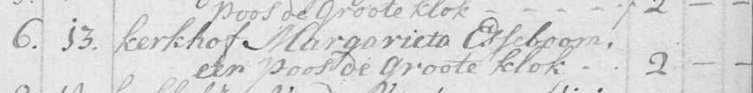 poos de Groote klok - - - - - / 2 - -
6. 13. kerkhof Margarieta Esseboom,
een poos de Groote klok - . 2 - -